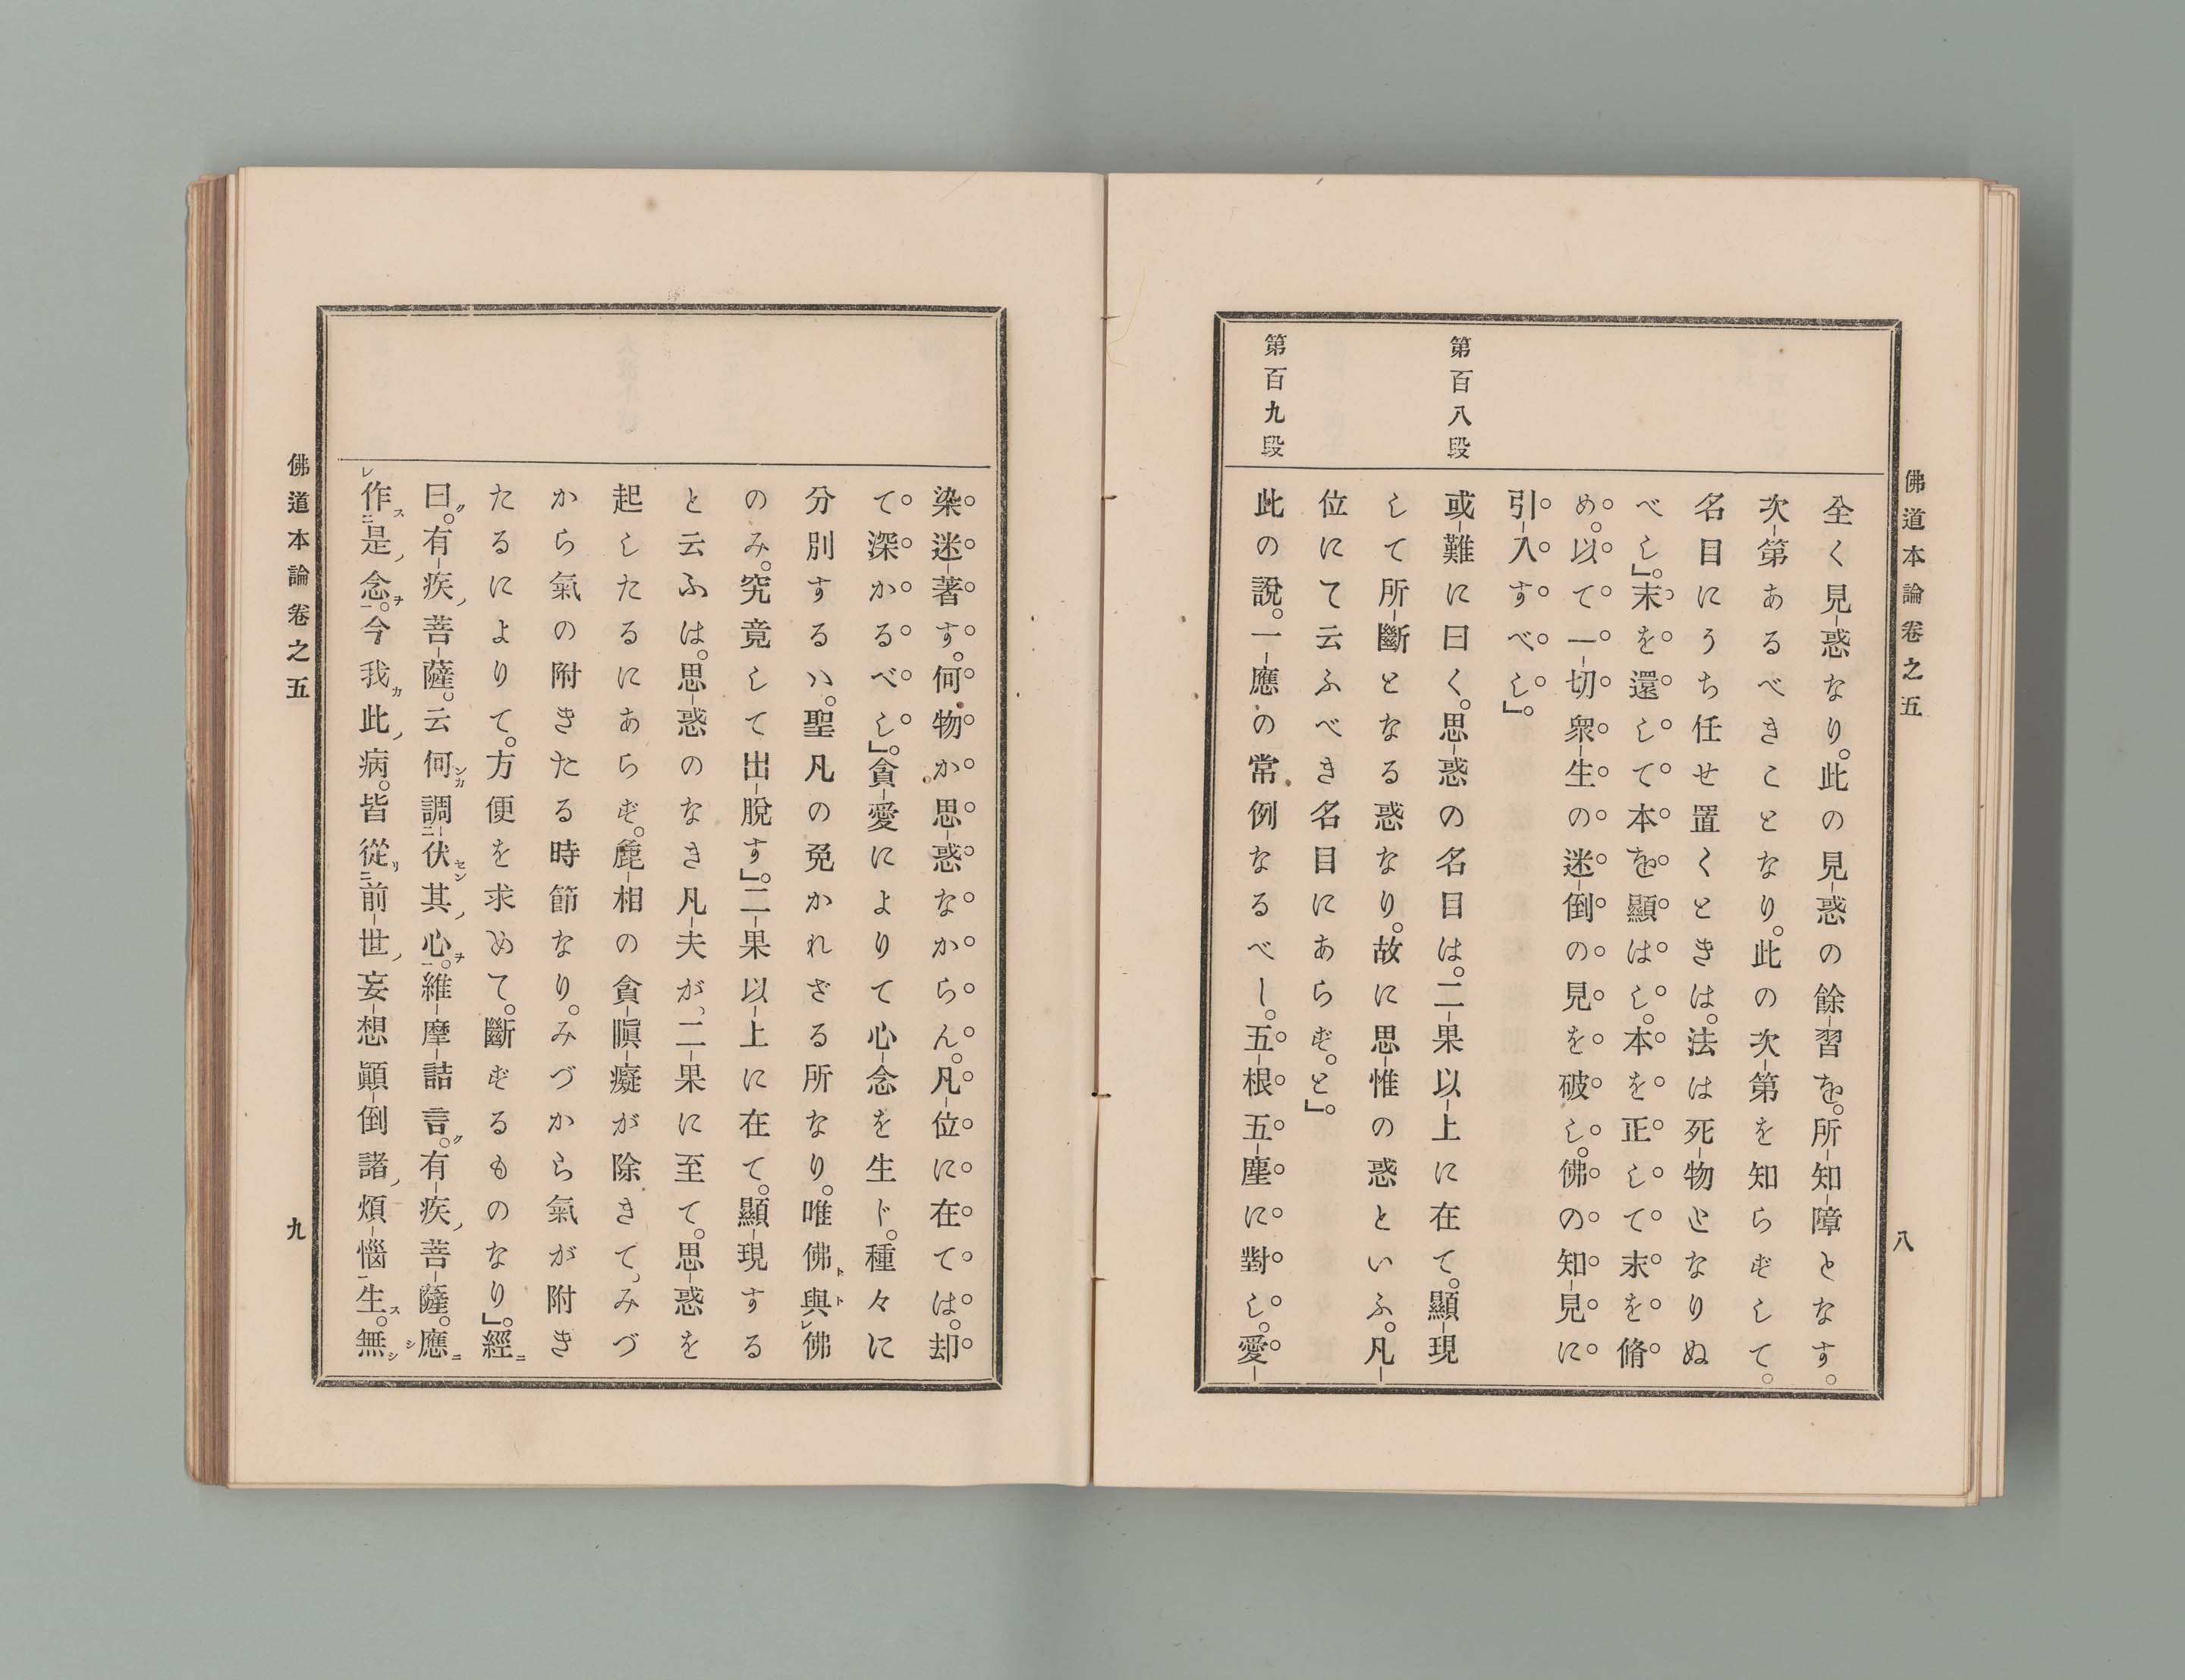 佛道本論卷之五
八
全く見惑なり。此の見惑の餘習を。所知障となす。
次第あるべきことなり。此の次第を知らずして。
名目にうち任せ置くときは。法は死物となりぬ
べし」。末を還して本を顯はし。本を正して末を脩
め。以て一切衆生の迷倒の見を破し。佛の知見に
引入すべし」。
第百八段
或難に曰く。思惑の名目は。二果以上に在て。顯現
して所斷となる惑なり。故に思惟の惑といふ。凡
位にて云ふべき名目にあらず。と」。
第百九段
此の說。一應の常例なるべし。五根五塵に對し。愛
染迷著す。何物か思惑なからん。凡位に在ては。却
て深かるべし」。貪愛によりて心念を生ド。種々に
分別するハ。聖凡の免かれざる所なり。唯佛ト與トレ佛
のみ。究竟して出脫す」。二果以上に在て。顯現する
と云ふは。思惑のなき凡夫が、二果に至て。思惑を
起したるにあらず。麁相の貪瞋癡が除きて、みづ
から氣の附きたる時節なり。みづから氣が附き
たるによりて。方便を求めて。斷ずるものなり」。經ニ
曰ク。有疾ノ菩薩。云何ンカ調二伏セン其ノ心ヲ一。維摩詰言ク。有疾ノ菩薩。應ニシ
レ作ス二是ノ念ヲ一。今我カ此ノ病。皆從リ二前世ノ妄想顚倒諸ノ煩惱一生ス。無シ
佛道本論卷之五
九